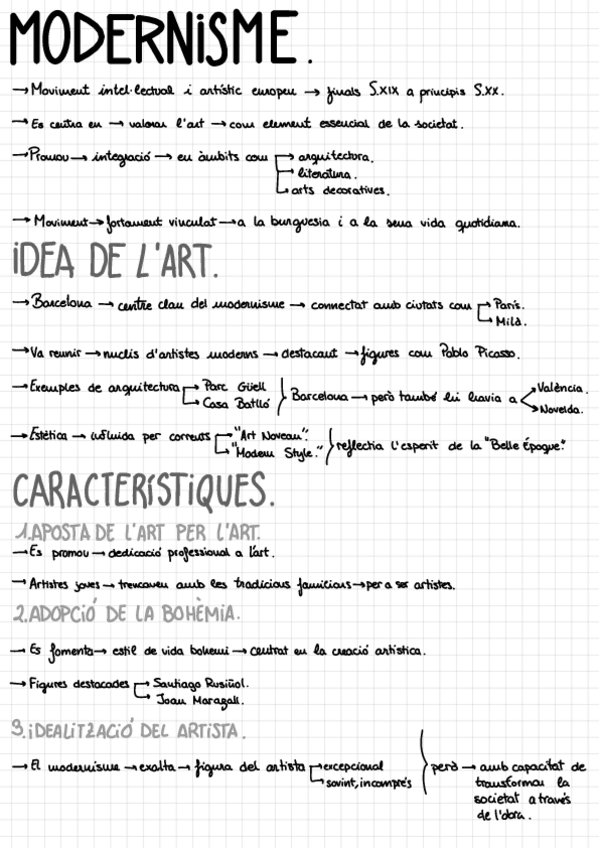 MODERNISME.
→ Moviment intel·lectual i artístic europeu → finals S.XIX a principis S.XX.
→ Es centra en → valorar l'art → com element essencial de la societat.
→ Promou → integració → en àmbits com → arquitectura.
→ literatura.
→ arts decoratives.
→ Moviment → fortament vinculat → a la burguesia i a la seua vida quotidiana.
IDEA DE L'ART.
→ Barcelona → centre clau del modernisme → connectat amb ciutats com → París.
→ Milà.
→ Va reunir → nuclis d'artistes moderns → destacant → figures com Pablo Picasso.
→ Exemples de arquitectura → Parc Güell
→ Casa Batlló } Barcelona → però també hi havia a → València.
→ Novelda.
→ Estètica → influida per corrents → "Art Noveau".
→ "Modern Style." } reflectia l'esperit de la "Belle Époque".
CARACTERÍSTIQUES.
1. APOSTA DE L'ART PER L'ART.
→ Es promou → dedicació professional a l'art.
→ Artistes joves → trencaven amb les tradicions familiars → per a ser artistes.
2. ADOPCIÓ DE LA BOHÈMIA.
→ Es fomenta → estil de vida bohemi → centrat en la creació artística.
→ Figures destacades → Santiago Rusiñol.
→ Joan Maragall.
3. IDEALITZACIÓ DEL ARTISTA.
→ El modernisme → exalta → figura del artista → excepcional
→ sovint, incomprés } però → amb capacitat de
transformar la
societat a través
de l'obra.